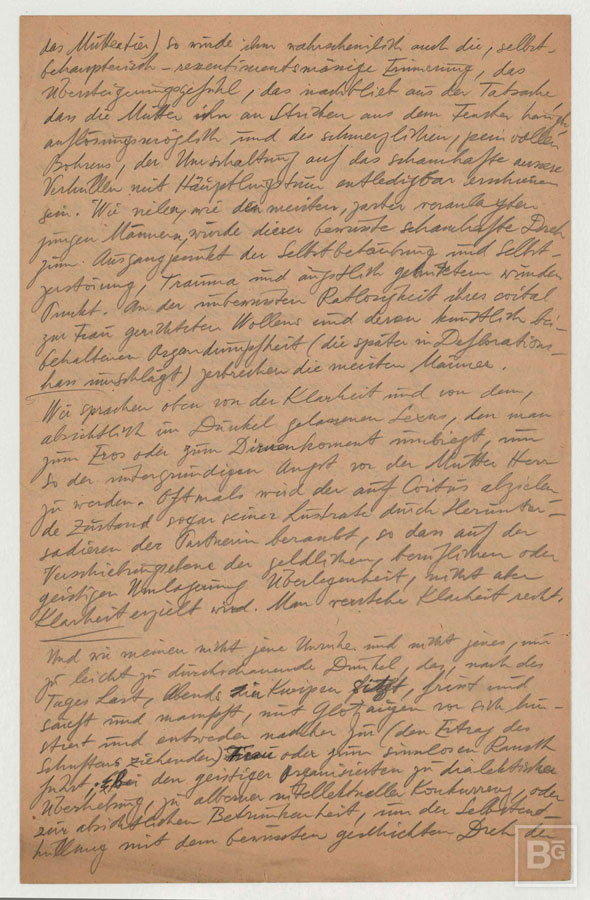 das Muttertier) so würde ihm wahrscheinlich auch die, selbst-
behaupterisch-ressentimentsmässige Erinnerung, das
Übersteigerungsgefühl, das nachblieb aus der Tatsache
dass die Mutter ihn an Stricken aus dem Fenster hängt,
auflösungsmöglich und des schmerzlichen, peinvollen
Bohrens, der Umschaltung auf das schamhafte
Verhüllen mit entledigbar erschienen
sein. Wie vielen, wie den meisten, zarter veranlagten
jungen Männern, wurde dieser bewusste schamhafte Dreh
zum Ausgangspunkt der Selbstbetäubung und Selbst-
zerstörung, Trauma und ängstlich gehüteten wunden
Punkt. An der unbewussten Ratlosigkeit ihres coital
zur Frau gerichteten Wollens und deren künstlich bei-
behaltenen Organdumpfheit (die später in Deflorations-
hass umschlägt) zerbrechen die meisten Männer.
Wir sprachen oben von der Klarheit und von dem,
absichtlich im Dunkel gelassenen Sexus, den man
zum Eros oder zum Dirnenkoment umbiegt, um
so der untergründigen Angst vor der Mutter Herr
zu werden. Oftmals wird der auf Coitus abzielen-
de Zustand sogar seiner Lustrate durch Herunter-
sadieren der Partnerin beraubt, so dass auf der
Verschiebungsebene der geldlichen, beruflichen oder
geistigen Umlagerung Überlegenheit, nicht aber
Klarheit erzielt wird. Man verstehe Klarheit recht.
Und wir meinen nicht jene Unruhe und nicht jenes, nur
zu leicht zu durchschauende Dunkel, das, nach des
Tages Last, Abends in Kneipen sitzt, frisst und
säuft und mampft, mit Glotzaugen vor sich hin-
stiert und entweder nachher zur (den Ertrag des
Schuftens ziehenden) Frau oder zum sinnlosen Rausch
führt, bei den geistiger Organisierten zu dialektischer
Überhebung, zu alberner intellektueller Konkurrenz, oder
zur absichtlichen Betrunkenheit, um der Selbstent-
hüllung mit dem bewussten geschickten Dreh der
BG